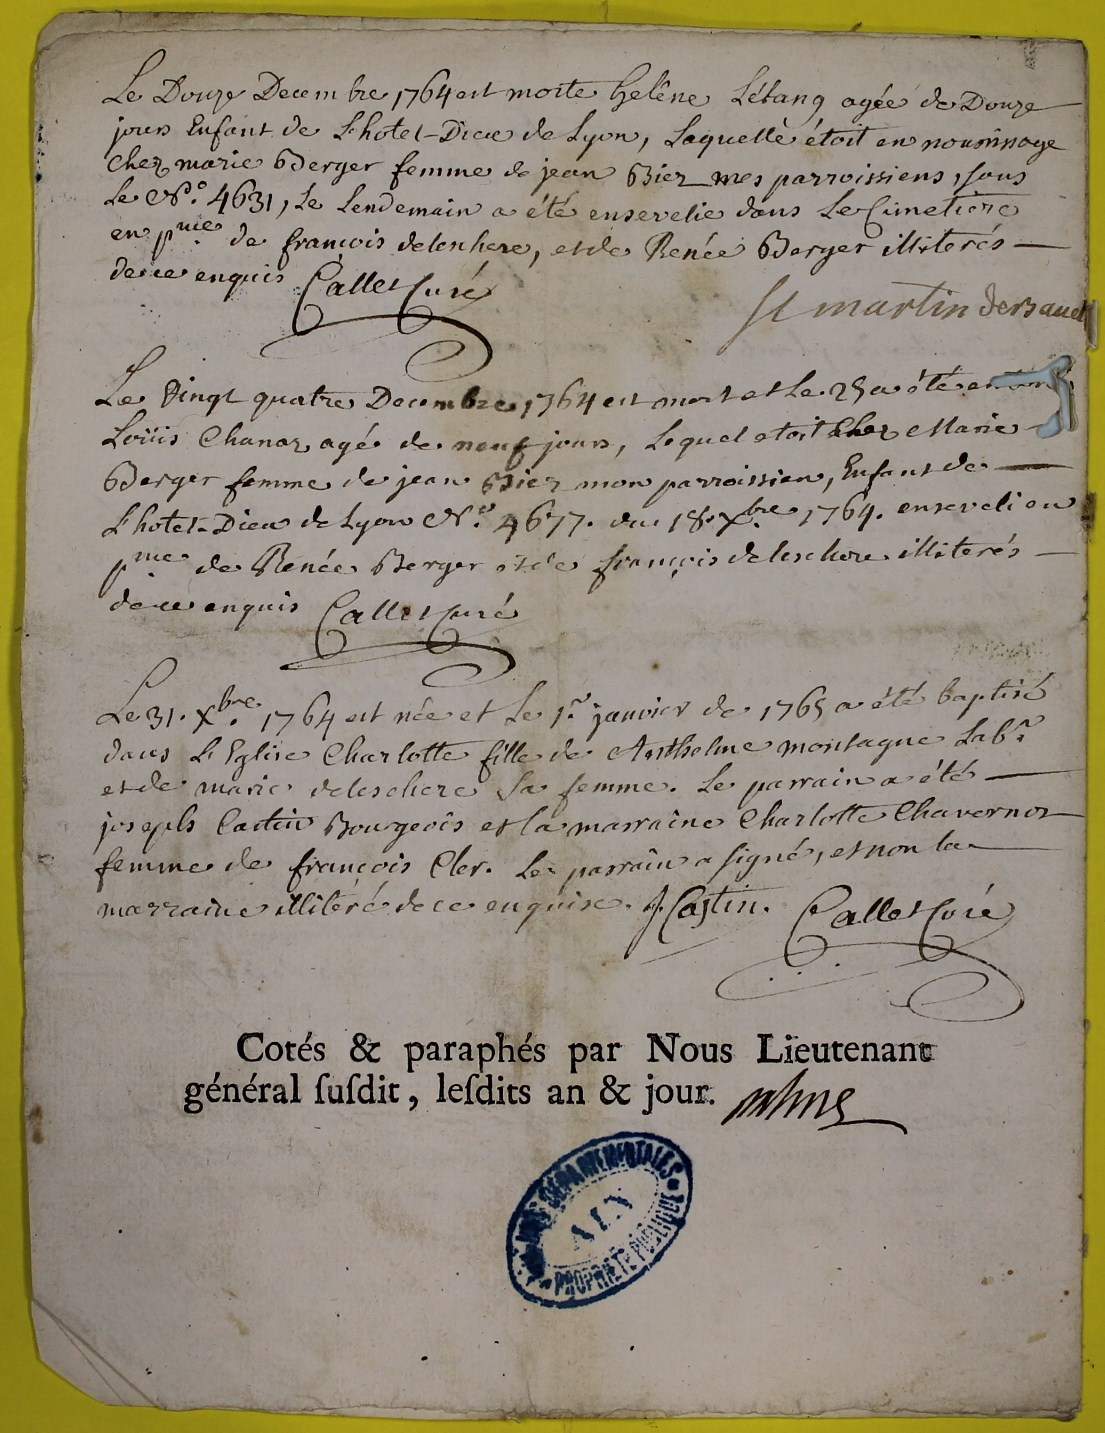 Le Douze Decembre 1764 est morte helêne Létang agée de Douze
jours Enfant de L'hotel-Dieu de Lyon, Laquelle étoit en nourrissage
chez marie Berger femme de jean Biez mes parroissiens, sous
Le N.º 4631, Le Lendemain a été ensevelie dans Le Cimetiere
en p.nce de francois deleschere, et de Renée Berger illiterés
de ce enquis Callet Curé
St martin de Bauel
Le Vingt quatre Decembre 1764 est mort et Le 25 a été
Loüis Chanaz agé de neuf jours, Lequel etoit chez Marie
Berger femme de jean Biez mon parroissien, Enfant de
L'hotel-Dieu de Lyon N.º 4677. du 18. Xbre 1764. enseveli en
p.nce de Renée Berger et de françois deleschere illiterés
de ce enquis Callet Curé
Le 31. Xbre 1764 est née et Le 1.r janvier de 1765 a été baptisé
dans L'Eglise Charlotte fille de Anthelme montagne Lab.r
et de marie deleschere Sa femme. Le parrain a été
joseph Castin Bourgeois et la marraine Charlotte Chavernoz
femme de françois Cler. Le parrain a signé, et non la
marraine illitéré de ce enquise. J. Castin. Callet Curé
Cotés & paraphés par Nous Lieutenant
général susdit, lesdits an & jour.
ARCHIVES DÉPARTEMENTALES
AIN
PROPRIÉTÉ PUBLIQUE